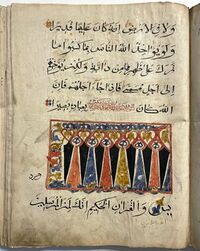 ولا في الارض انه كان عليما قديرا
ولو يؤاخذ الله الناس بما كسبوا ما
ترك على ظهرها من دابة ولكن يؤخرهم
الى اجل مسمى فاذا جاء اجلهم فان
الله كان بعباده بصيرا
يس والقران الحكيم انك لمن المرسلين